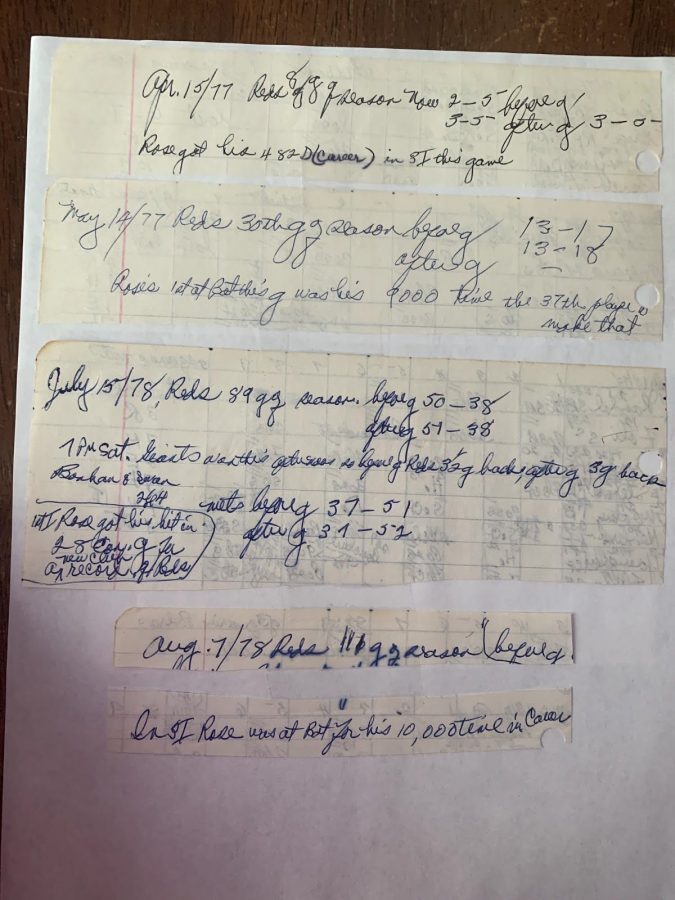 Apr. 15/77 Reds 8 g g season now 2-5 before g
3-5 after g 3-5
Rose got his 482 D (career) in 8 I this game
May 14/77 Reds 30th g g season before g 13-17
after g 13-18
Rose's 1st at Bat this g was his 9000 time the 37th player to
make that
July 15/78, Reds 89 g g season. before g 50-38
after g 51-38
7 PM Sat. Giants won this afternoon so before g Reds 3½ g back, after g 3 g back
Bonham & Swan
mets before g 37-51
after g 37-52
1st I Rose got his hit in
28 Con. g for
new club
record of Reds
Aug. 7/78 Reds 111 g g season before g.
In 8 I Rose was at Bat for his 10,000 time in Career